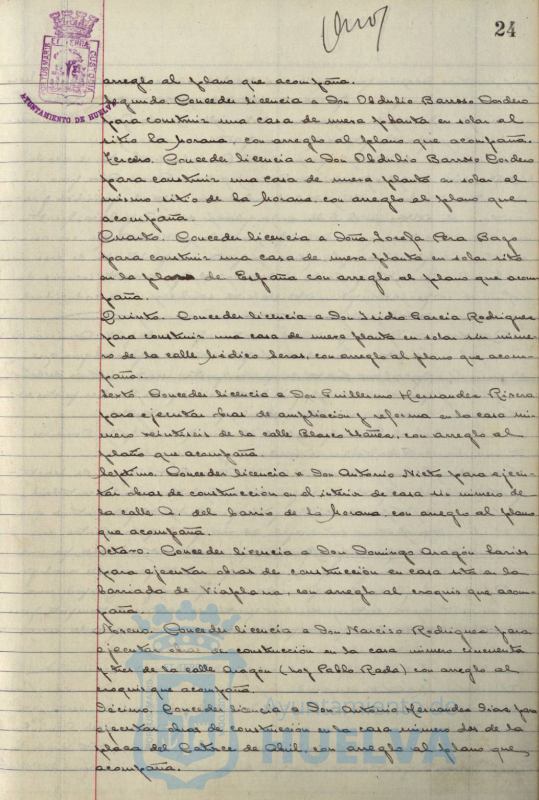 24
AYUNTAMIENTO DE HUELVA
arreglo al plano que acompaña.
Segundo. Conceder licencia a Don Obdulio Barroso Cordero
para construir una casa de nueva planta en solar al
sitio la Morana, con arreglo al plano que acompaña.
Tercero. Conceder licencia a Don Obdulio Barroso Cordero
para construir una casa de nueva planta en solar al
mismo sitio de la Morana, con arreglo al plano que
acompaña.
Cuarto. Conceder licencia a Doña Josefa Bazo
para construir una casa de nueva planta en solar sito
en la plaza de España con arreglo al plano que acom-
paña.
Quinto. Conceder licencia a Don Isidro García Rodríguez
para construir una casa de nueva planta en solar sin núme-
ro de la calle con arreglo al plano que acom-
paña.
Sexto. Conceder licencia a Don Guillermo Hernandez Rivera
para ejecutar obras de ampliación y reforma en la casa nú-
mero veintiseis de la calle Blasco Ibáñez, con arreglo al
plano que acompaña.
Séptimo. Conceder licencia a Don Antonio Nieto para ejecu-
tar obras de construcción en el interior de casa sin número de
la calle A. del barrio de la Morana, con arreglo al plano
que acompaña.
Octavo. Conceder licencia a Don Domingo Aragón
para ejecutar obras de construcción en casa sita en la
barriada de Viaplana, con arreglo al croquis que acom-
paña.
Noveno. Conceder licencia a Don Narciso Rodriguez para
ejecutar obras de construcción en la casa número cincuenta
y tres de la calle Aragón (hoy Pablo Rada) con arreglo al
croquis que acompaña.
Décimo. Conceder licencia a Don Antonio Hernandez Diaz para
ejecutar obras de construcción en la casa número dos de la
plaza del Catorce de Abril, con arreglo al plano que
acompaña.
Ayuntamiento de
HUELVA